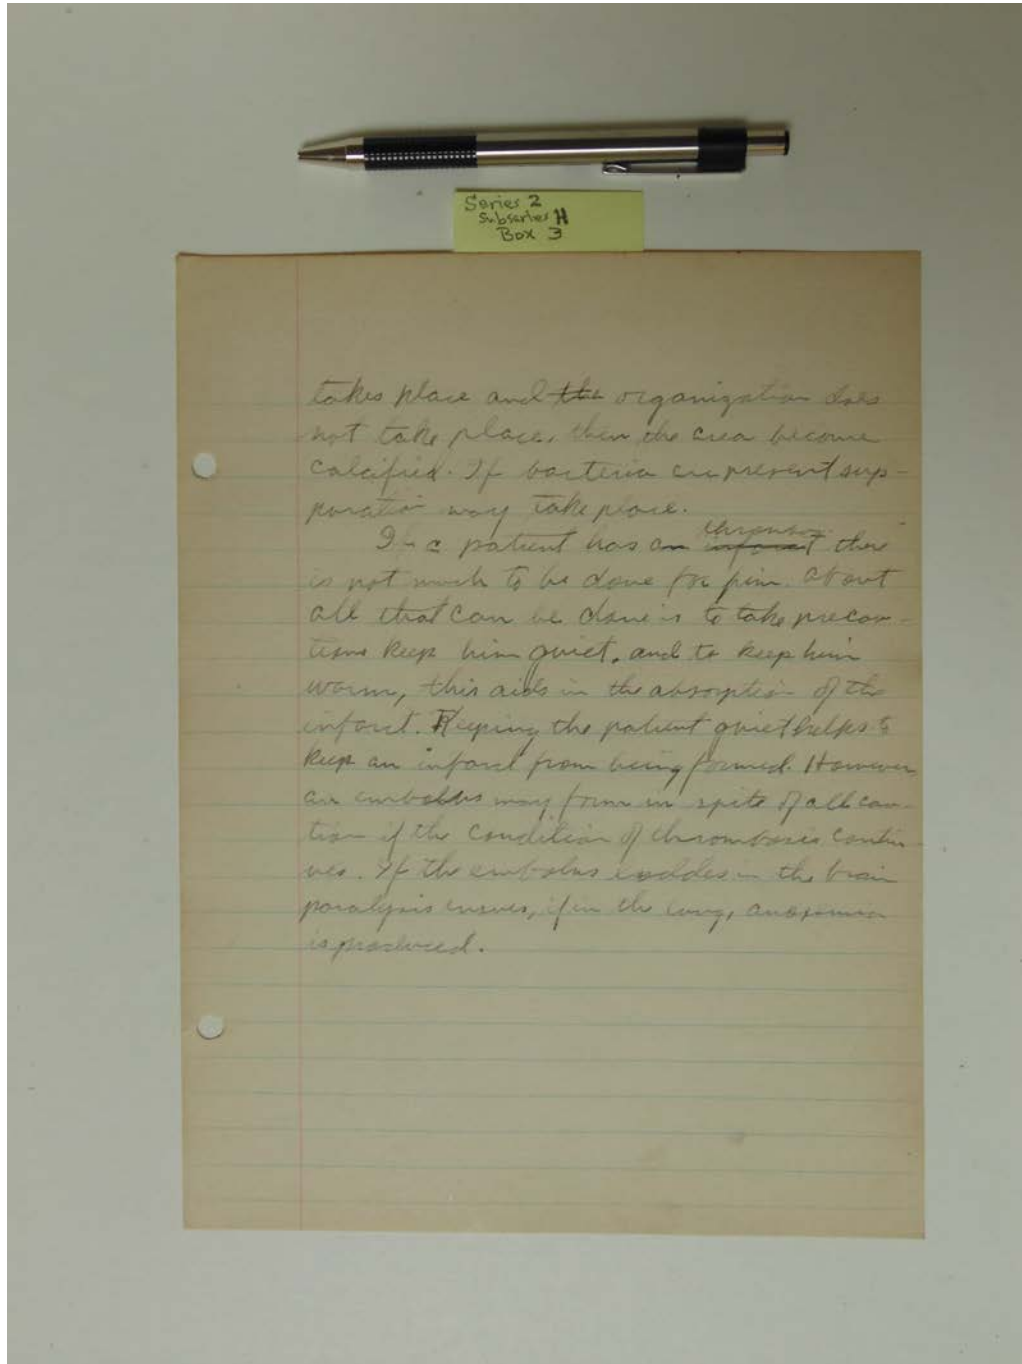 Series 2
Subseries H
Box 3
takes place and the organization does
not take place, then the area become
calcified. If bacteria are present sup-
puration may take place.
thrombus
If a patient has an infarct there
is not much to be done for him. About
all that can be done is to take precau-
tions keep him quiet, and to keep him
warm, this aids in the absorption of the
infarct. Keeping the patient quiet helps to
keep an infarct from being formed. However
an embolus may form in spite of all cau-
tion if the condition of thrombosis contin-
ues. If the embolus in the brain
paralysis ensues, if in the lung,
is produced.